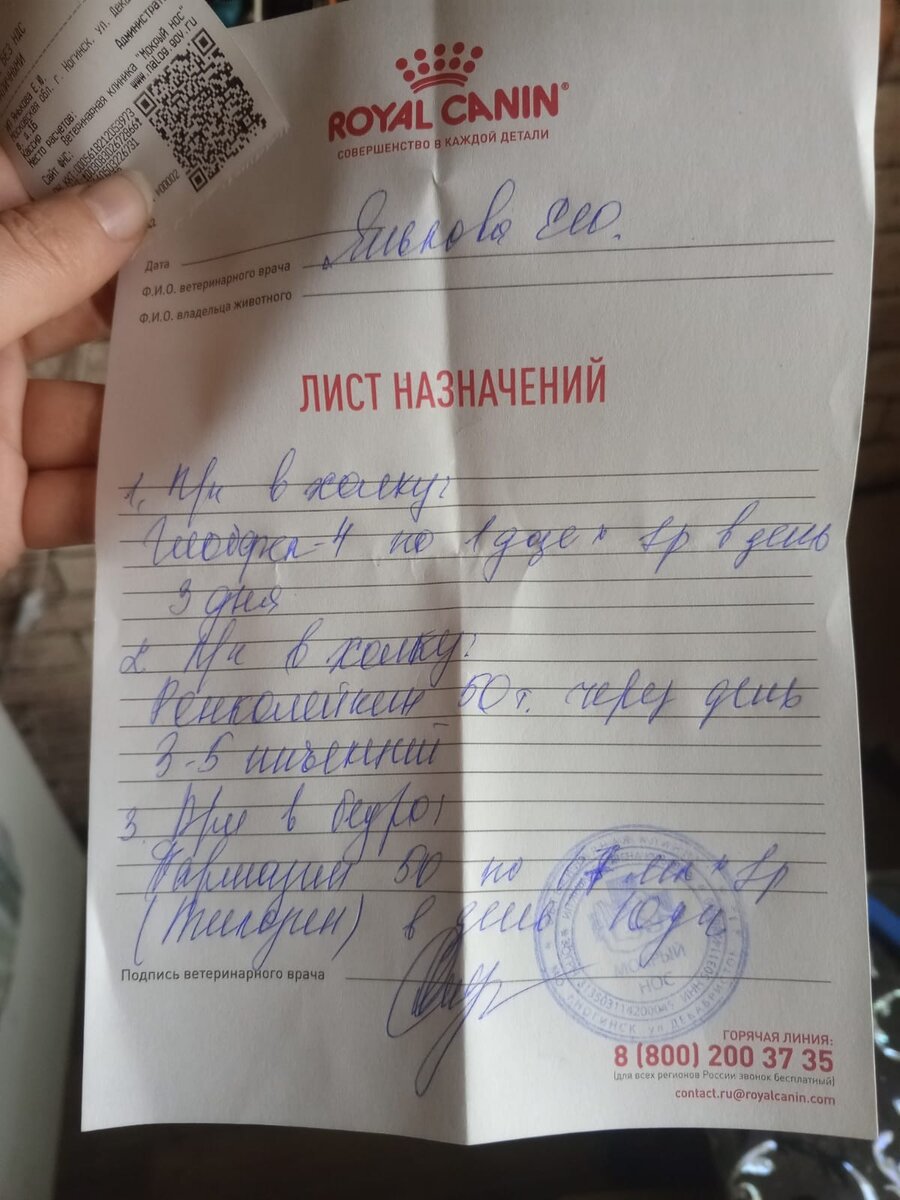 БЕЗ НАС
ИП Янькова Е.Ю.
Московская обл. г. Ногинск. ул. Дека
д. 1Б
Кассир Администрат
Место расчетов: Ветеринарная клиника "Мокрый нос"
Сайт ФНС: www.nalog.gov.ru
ROYAL CANIN®
СОВЕРШЕНСТВО В КАЖДОЙ ДЕТАЛИ
Дата
Ф.И.О. ветеринарного врача Янькова ЕЮ.
Ф.И.О. владельца животного
ЛИСТ НАЗНАЧЕНИЙ
1. П/к в холку:
Глобфел-4 по 1 дозе × 1р в день
3 дня
2. П/к в холку:
Ронколейкин 50т. через день
3-5 инъекций
3. В/м в бедро:
Фармазин 50 по мл × 1р
(Тилозин) в день 10дн
Подпись ветеринарного врача
МОКРЫЙ
НОС
ГОРЯЧАЯ ЛИНИЯ:
8 (800) 200 37 35
(для всех регионов России звонок бесплатный)
contact.ru@royalcanin.com